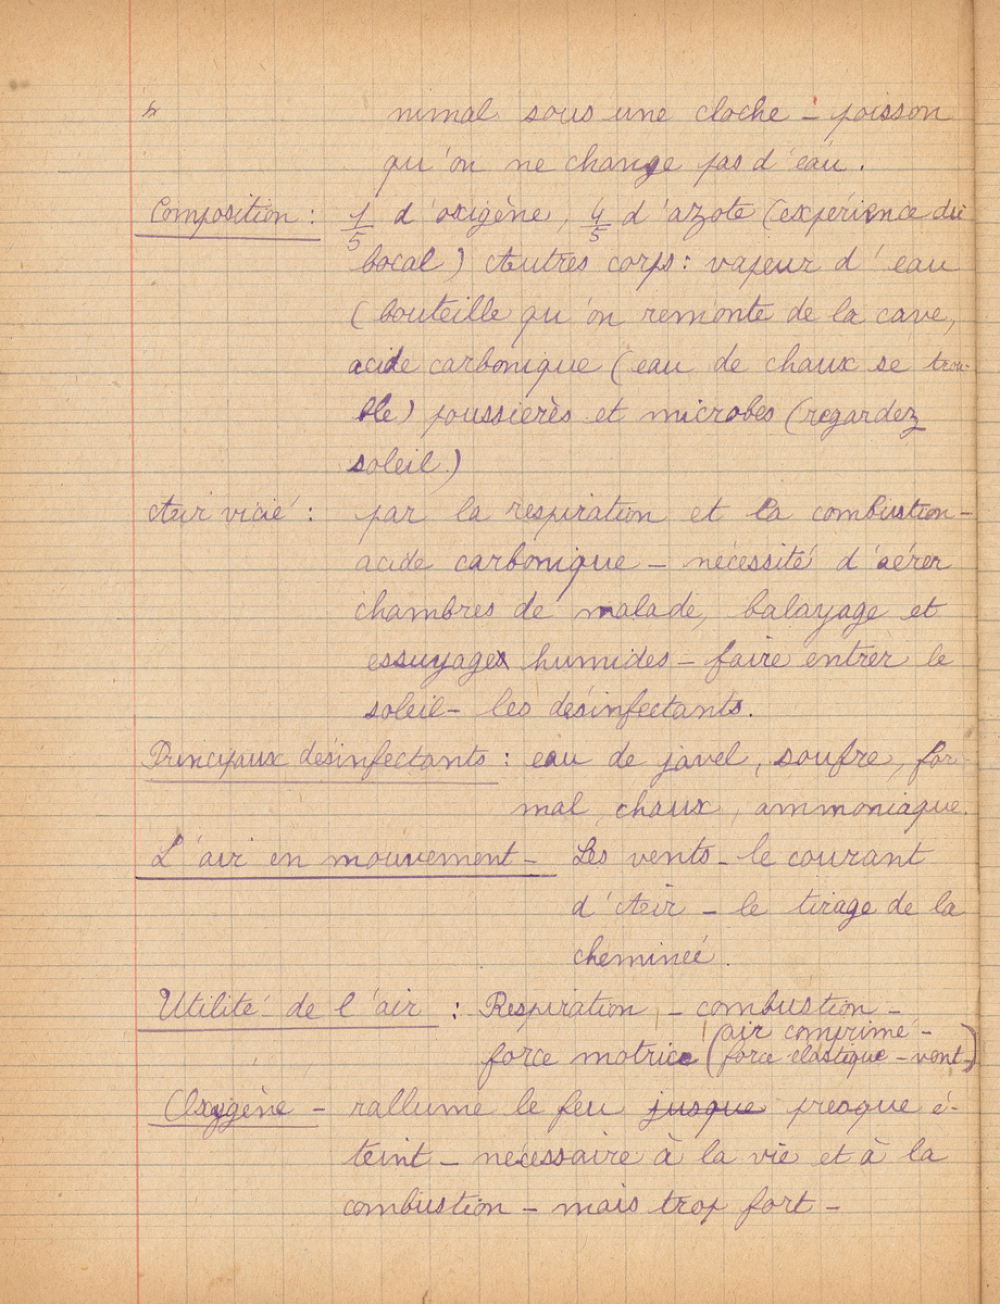 nimal sous une cloche - poisson
qu'on ne change pas d'eau.
Composition : 1/5 d'oxigène, 4/5 d'azote (expérience du
bocal) Autres corps : vapeur d'eau
(bouteille qu'on remonte de la cave,
acide carbonique (eau de chaux se trou-
ble) poussières et microbes (regardez
soleil.)
Air vicié : par la respiration et la combustion -
acide carbonique - nécessité d'aérer
chambres de malade, balayage et
essuyages humides - faire entrer le
soleil - les désinfectants.
Principaux désinfectants : eau de javel, soufre, for-
mol, chaux, ammoniaque.
L'air en mouvement - Les vents - le courant
d'Air - le tirage de la
cheminée.
Utilité de l'air : Respiration - combustion -
force motrice (air comprimé -
force élastique - vent -)
Oxygène - rallume le feu jusque presque é-
teint - nécessaire à la vie et à la
combustion - mais trop fort -